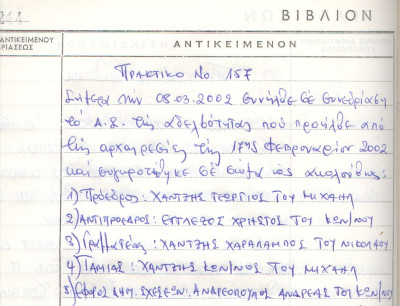 211
ΒΙΒΛΙΟΝ
ΑΝΤΙΚΕΙΜΕΝΟΥ
ΡΙΑΣΕΩΣ
ΑΝΤΙΚΕΙΜΕΝΟΝ
ΠΡΑΚΤΙΚΟ Νο. 157
Σήμερα την 08.03.2002 συνήλθε σε συνεδρίαση
το Δ.Σ. της αδελφότητας που προήλθε από
τις αρχαιρεσίες της 17ης Φεβρουαρίου 2002
και συγκροτήθηκε σε σώμα ως ακολούθως:
1) Πρόεδρος: ΧΑΝΤΖΗΣ ΓΕΩΡΓΙΟΣ ΤΟΥ ΜΙΧΑΗΛ
2) ΑΝΤΙΠΡΟΕΔΡΟΣ: ΕΓΓΛΕΖΟΣ ΧΡΗΣΤΟΣ ΤΟΥ ΚΩΝ/ΝΟΥ
3) Γραμματέας: ΧΑΝΤΖΗΣ ΧΑΡΑΛΑΜΠΟΣ ΤΟΥ ΝΙΚΟΛΑΟΥ
4) ΤΑΜΙΑΣ: ΧΑΝΤΖΗΣ ΚΩΝ/ΝΟΣ ΤΟΥ ΜΙΧΑΗΛ
5) Έφορος ΔΗΜ. ΣΧΕΣΕΩΝ: ΑΝΔΡΕΟΠΟΥΛΟΣ ΑΝΔΡΕΑΣ ΤΟΥ ΚΩΝ/ΝΟΥ